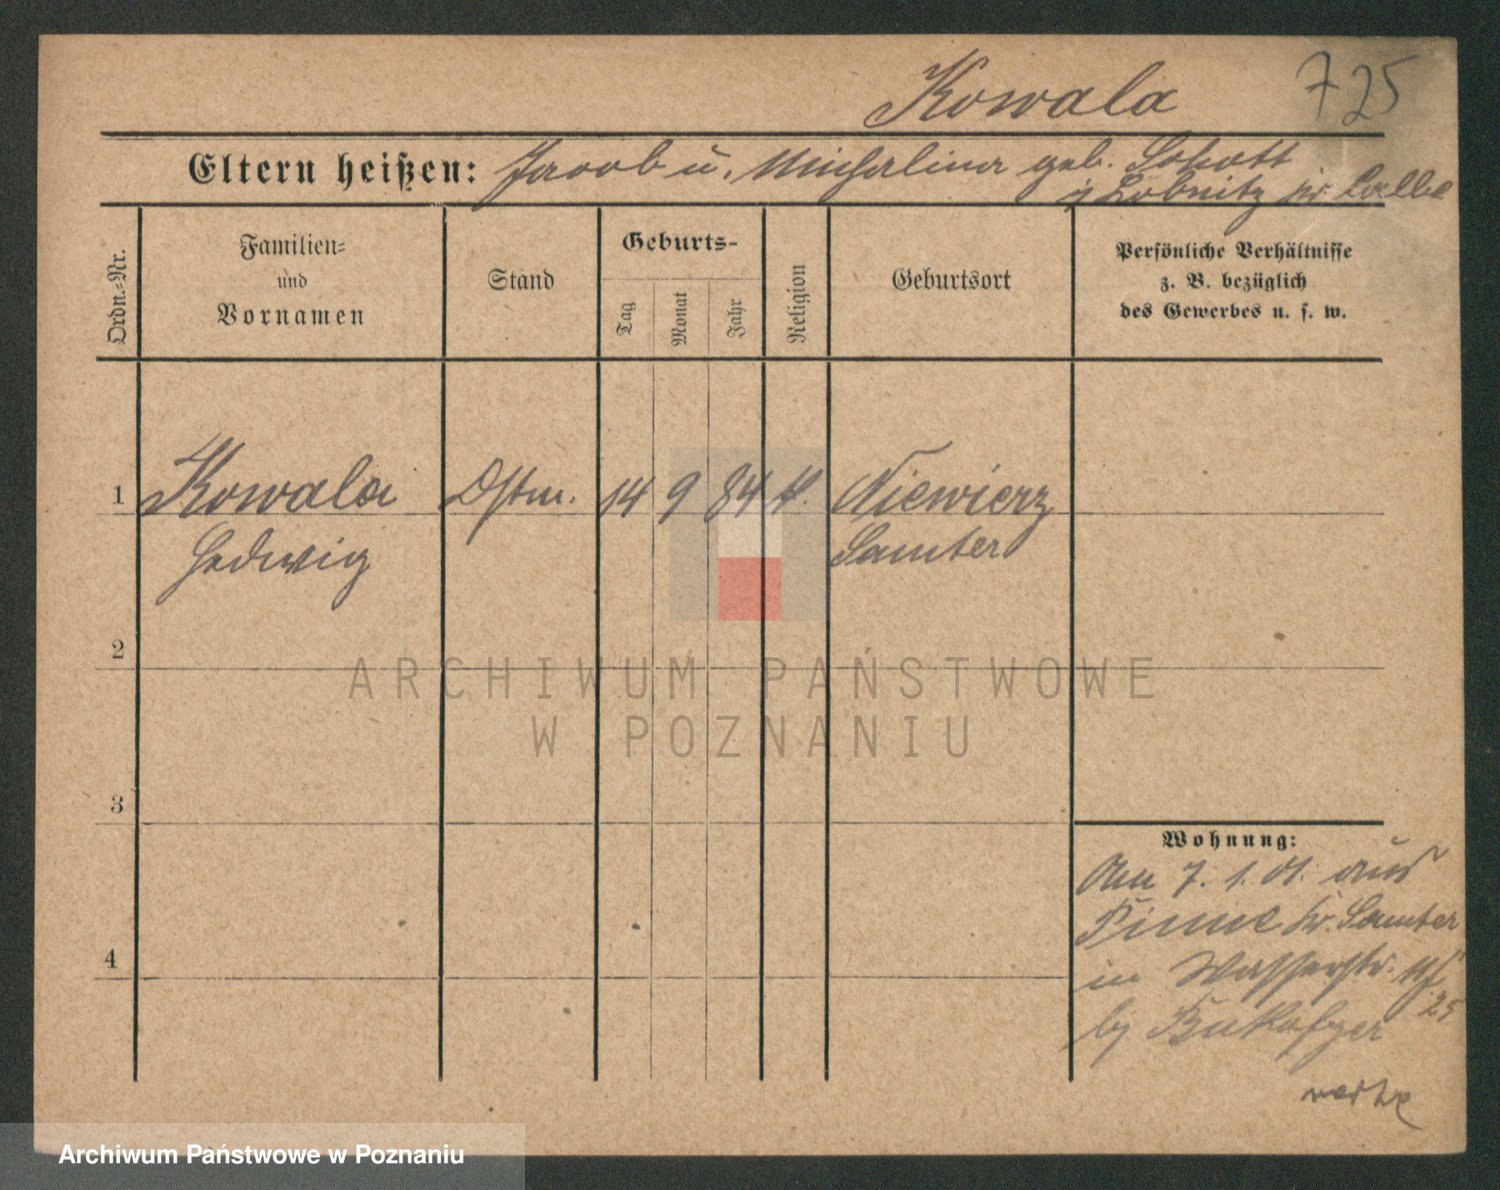 Kowala 725
Eltern heißen: Jacob u. Michalina geb. Schott
Lobnitz Kr Calbe
Ordn.=Nr.
Familien=
und
Vornamen
Stand
Geburts-
Tag
Monat
Jahr
Religion
Geburtsort
Persönliche Verhältnisse
z. B. bezüglich
des Gewerbes u. s. w.
1 Kowala Dstm. 14 9 84 k. Niewierz
Hedwig Samter
2
ARCHIWUM PAŃSTWOWE
W POZNANIU
3
Wohnung:
7. 1. 01. aus
Pinne Kr. Samter
4
in Wasserstr.
25
by
Archiwum Państwowe w Poznaniu